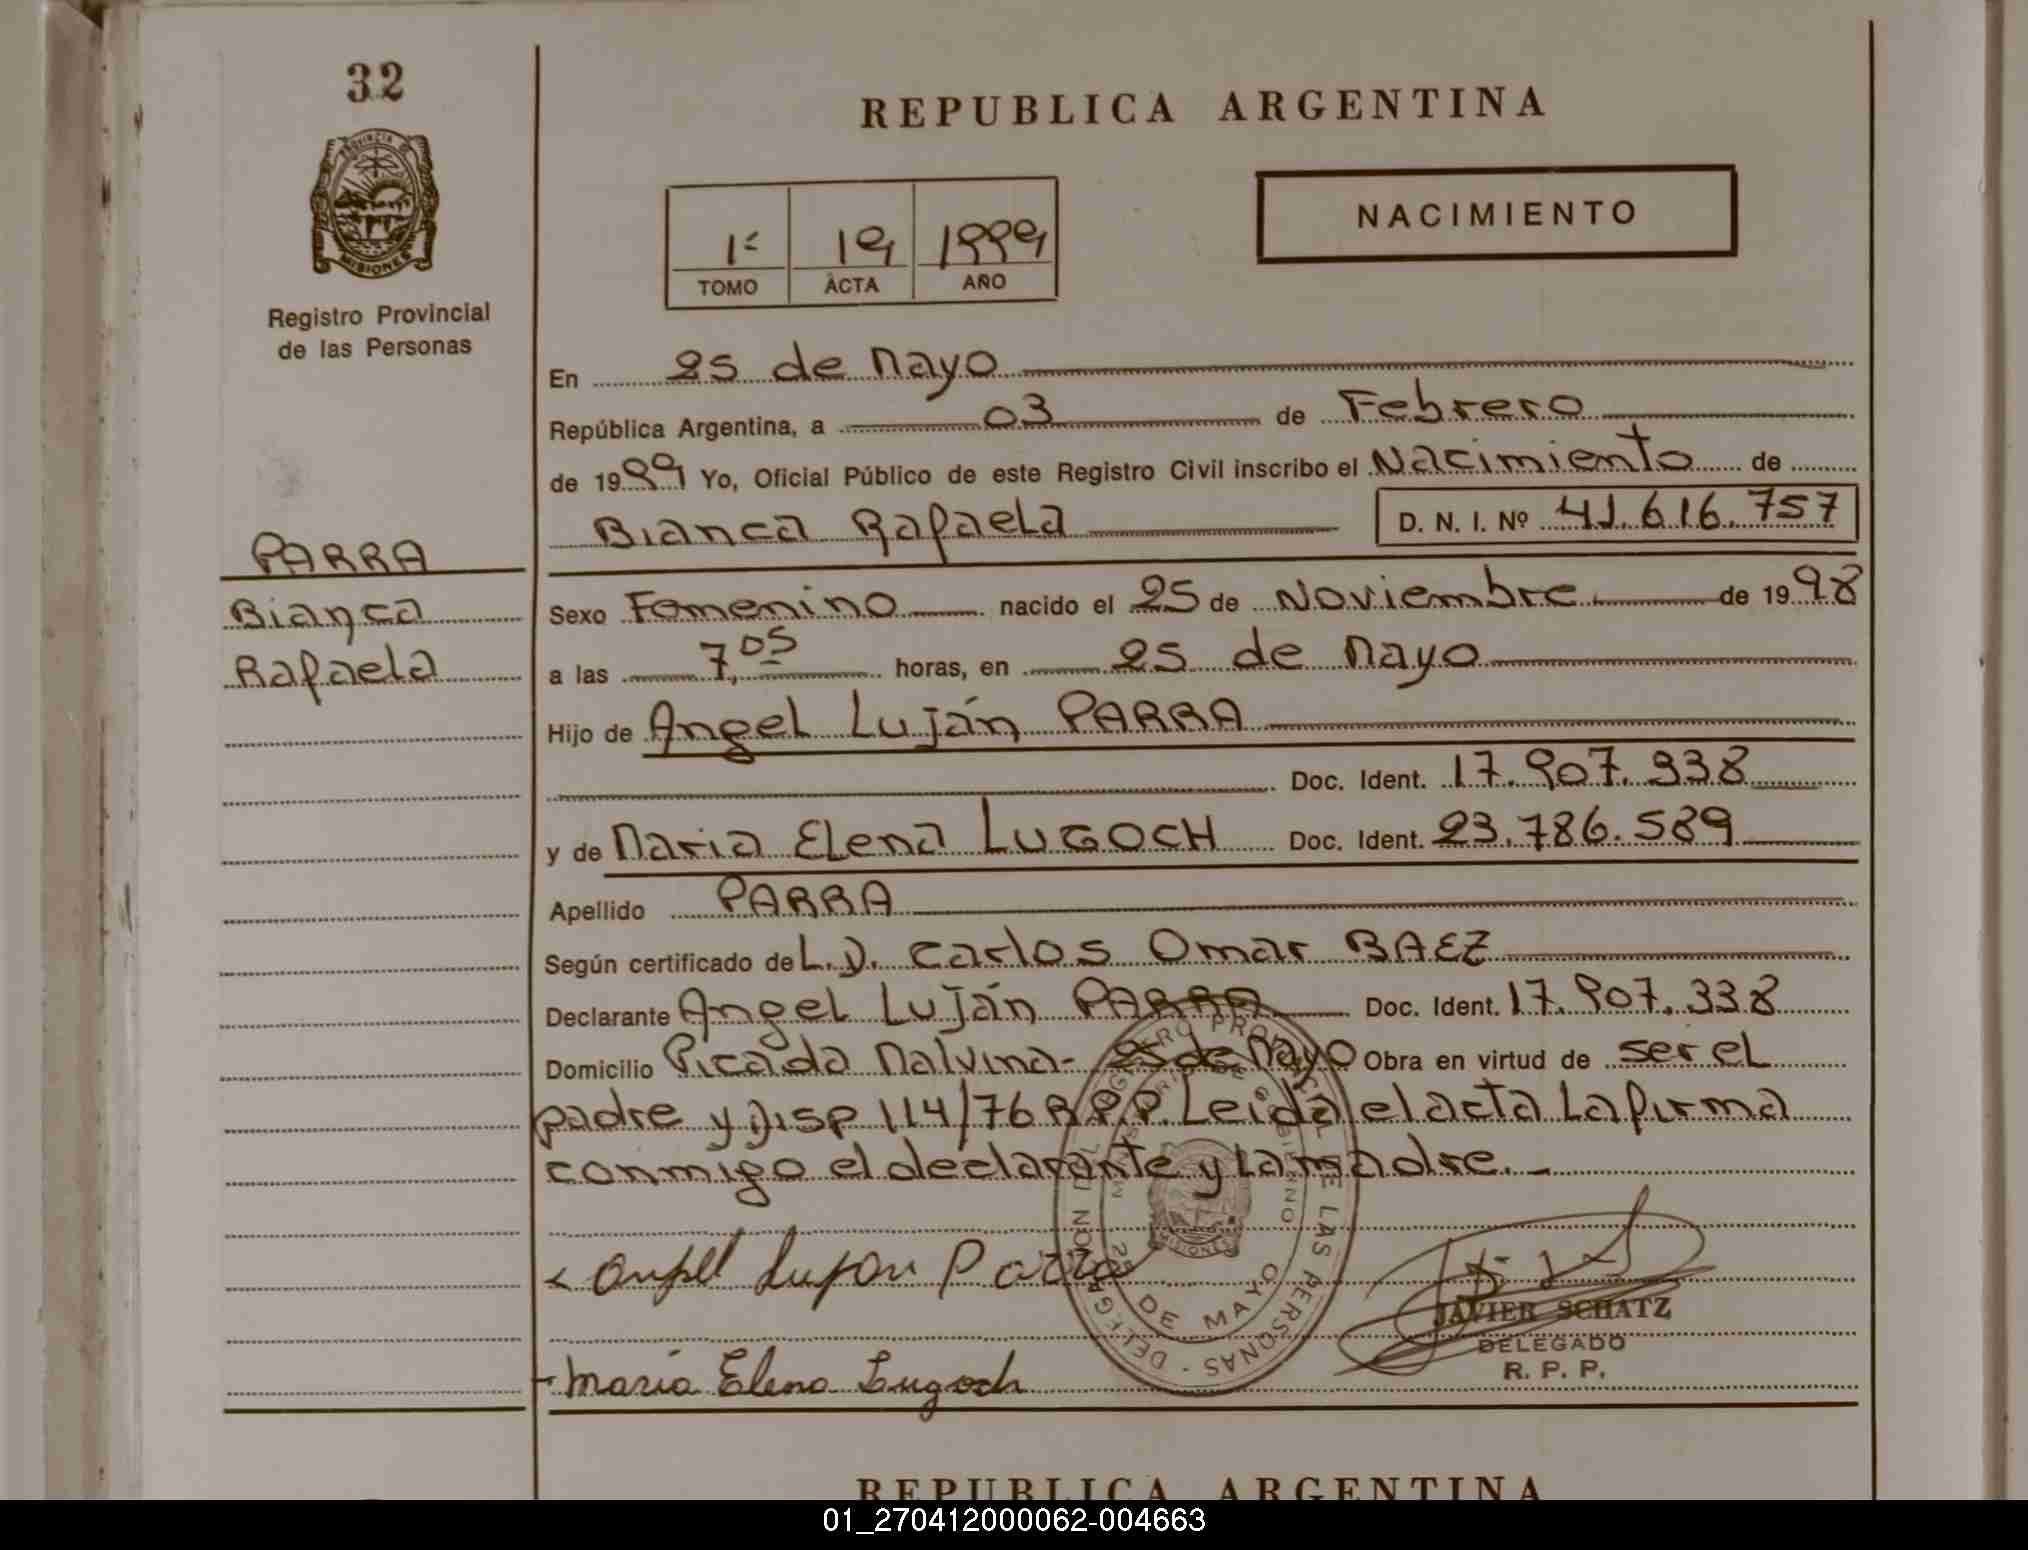 32
PROVINCIA DE
MISIONES
Registro Provincial
de las Personas
PARRA
Bianca
Rafaela
REPUBLICA ARGENTINA
1º 19 1999
TOMO ACTA AÑO
NACIMIENTO
En 25 de Mayo
República Argentina, a 03 de Febrero
de 1999 Yo, Oficial Público de este Registro Civil inscribo el Nacimiento de
Bianca Rafaela D. N. I. Nº 41.616.757
Sexo Femenino nacido el 25 de Noviembre de 1998
a las 7,05 horas, en 25 de Mayo
Hijo de Angel Luján PARRA
Doc. Ident. 17.907.338
y de Maria Elena LUGOCH Doc. Ident. 23.786.589
Apellido PARRA
Según certificado de L.D. Carlos Omar BAEZ
Declarante Angel Luján PARRA Doc. Ident. 17.907.338
Domicilio Picada Malvina- 25 de Mayo Obra en virtud de ser el
padre y Disp 114/76 R.P.P. Leida el acta La firma
conmigo el declarante y La madre.-
Angel Lujan Parra
JAVIER SCHATZ
DELEGADO
R. P. P.
Maria Elena Lugoch
DE LAS PERSONAS - DELEGACION
25 DE MAYO
MISIONES
REPUBLICA ARGENTINA
01_270412000062-004663